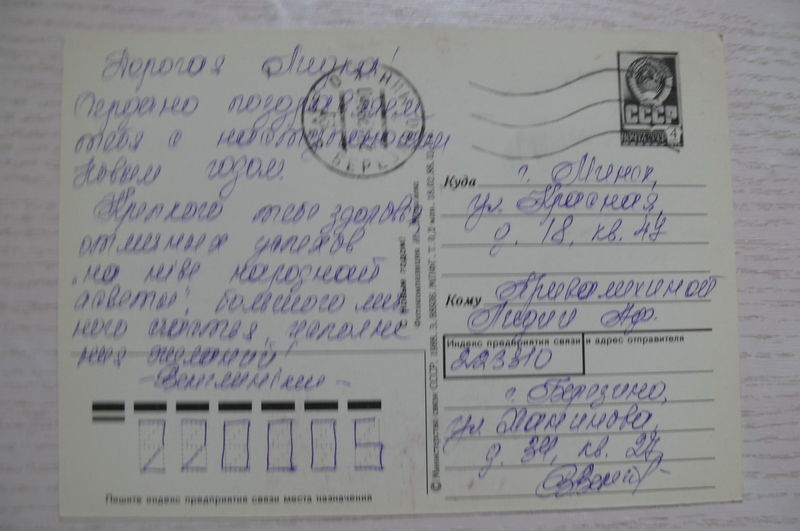 Дорогая Лиона!
Сердечно поздравляем
тебя с наступающим
Новым годом.
Крепкого тебе здоровья
отличных успехов
"на ніве народнай
асветы", большого лич
ного счастья, исполне
ния желаний!
СССР
ПОЧТА
4
Куда
г. Минск,
ул. Красная,
д. 18, кв. 47
Кому
Кривалихиной
Лидии Аф.
Индекс предприятия связи и адрес отправителя
223310
г. Березино,
ул.
д. 34, кв. 27,
220005
Пишите индекс предприятия связи места назначения
© Министерство связи СССР. 1988.